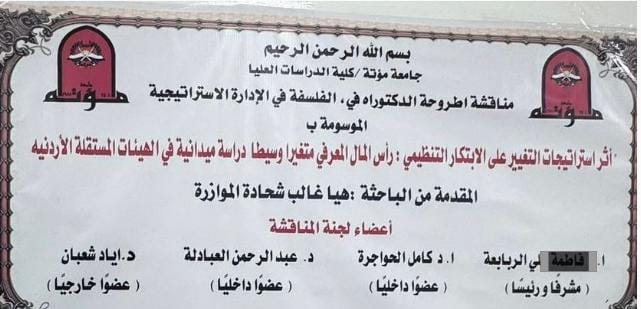 بسم الله الرحمن الرحيم
جامعة مؤتة /كلية الدراسات العليا
مناقشة اطروحة الدكتوراه في، الفلسفة في الإدارة الاستراتيجية
الموسومة ب
"أثر استراتيجيات التغيير على الابتكار التنظيمي : رأس المال المعرفي متغيرا وسيطا دراسة ميدانية في الهيئات المستقلة الأردنيه
المقدمة من الباحثة :هيا غالب شحادة الموازرة
أعضاء لجنة المناقشة
ا. فاطمة لي الربابعة
ا.د كامل الحواجرة
د. عبد الرحمن العبادلة
د.اياد شعبان
(مشرفًا ورئيسًا)
(عضوًا داخليًا)
(عضوًا داخليًا)
(عضوًا خارجيًا)
مؤتة
مؤتة